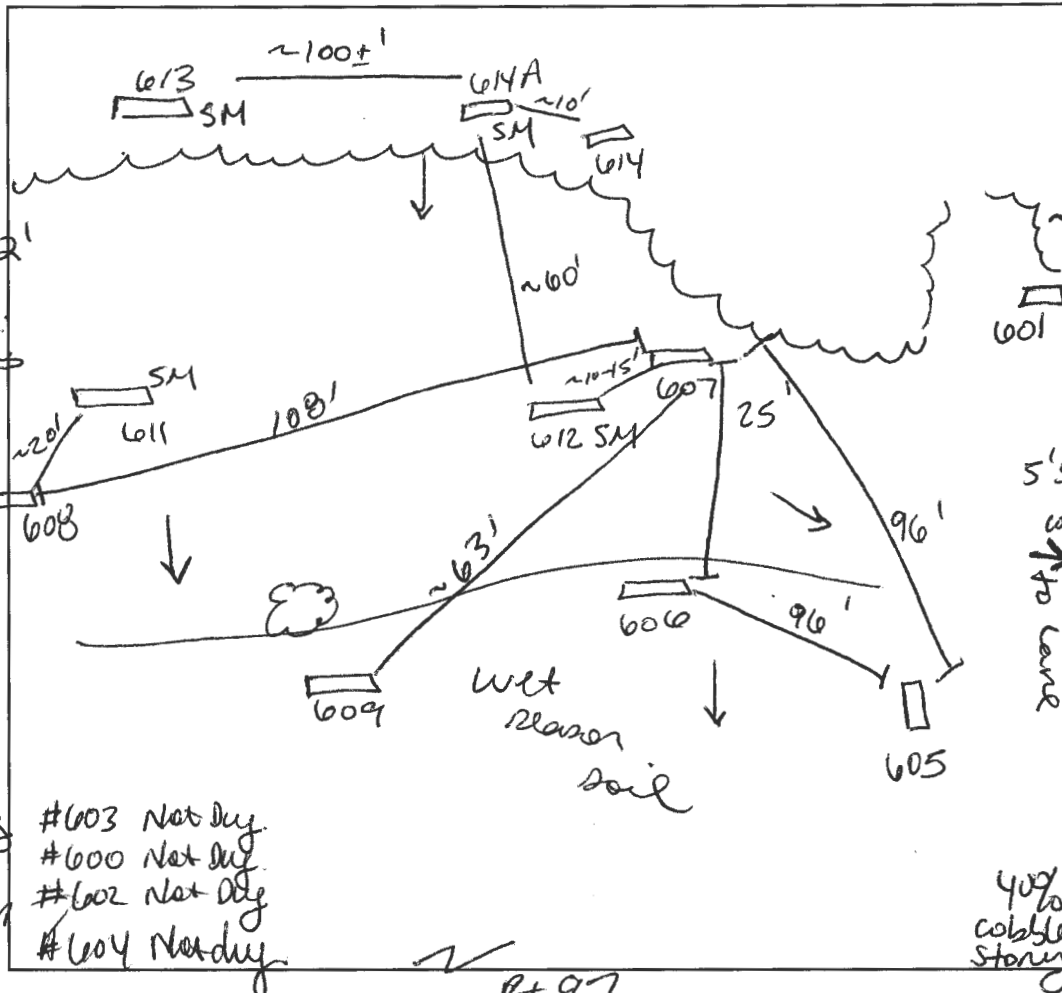 ~100±'
613
SM
614A
SM
~10'
614
2'
~60'
601
SM
611
~20'
108'
~10-15'
607
612 SM
25'
608
~63'
96'
5's
to lane
606
96'
609
wet
season
soil
605
#603 Not Dug
#600 Not Dug
#602 Not Dug
#604 Not dug
40%
cobble
stones
Rt 97